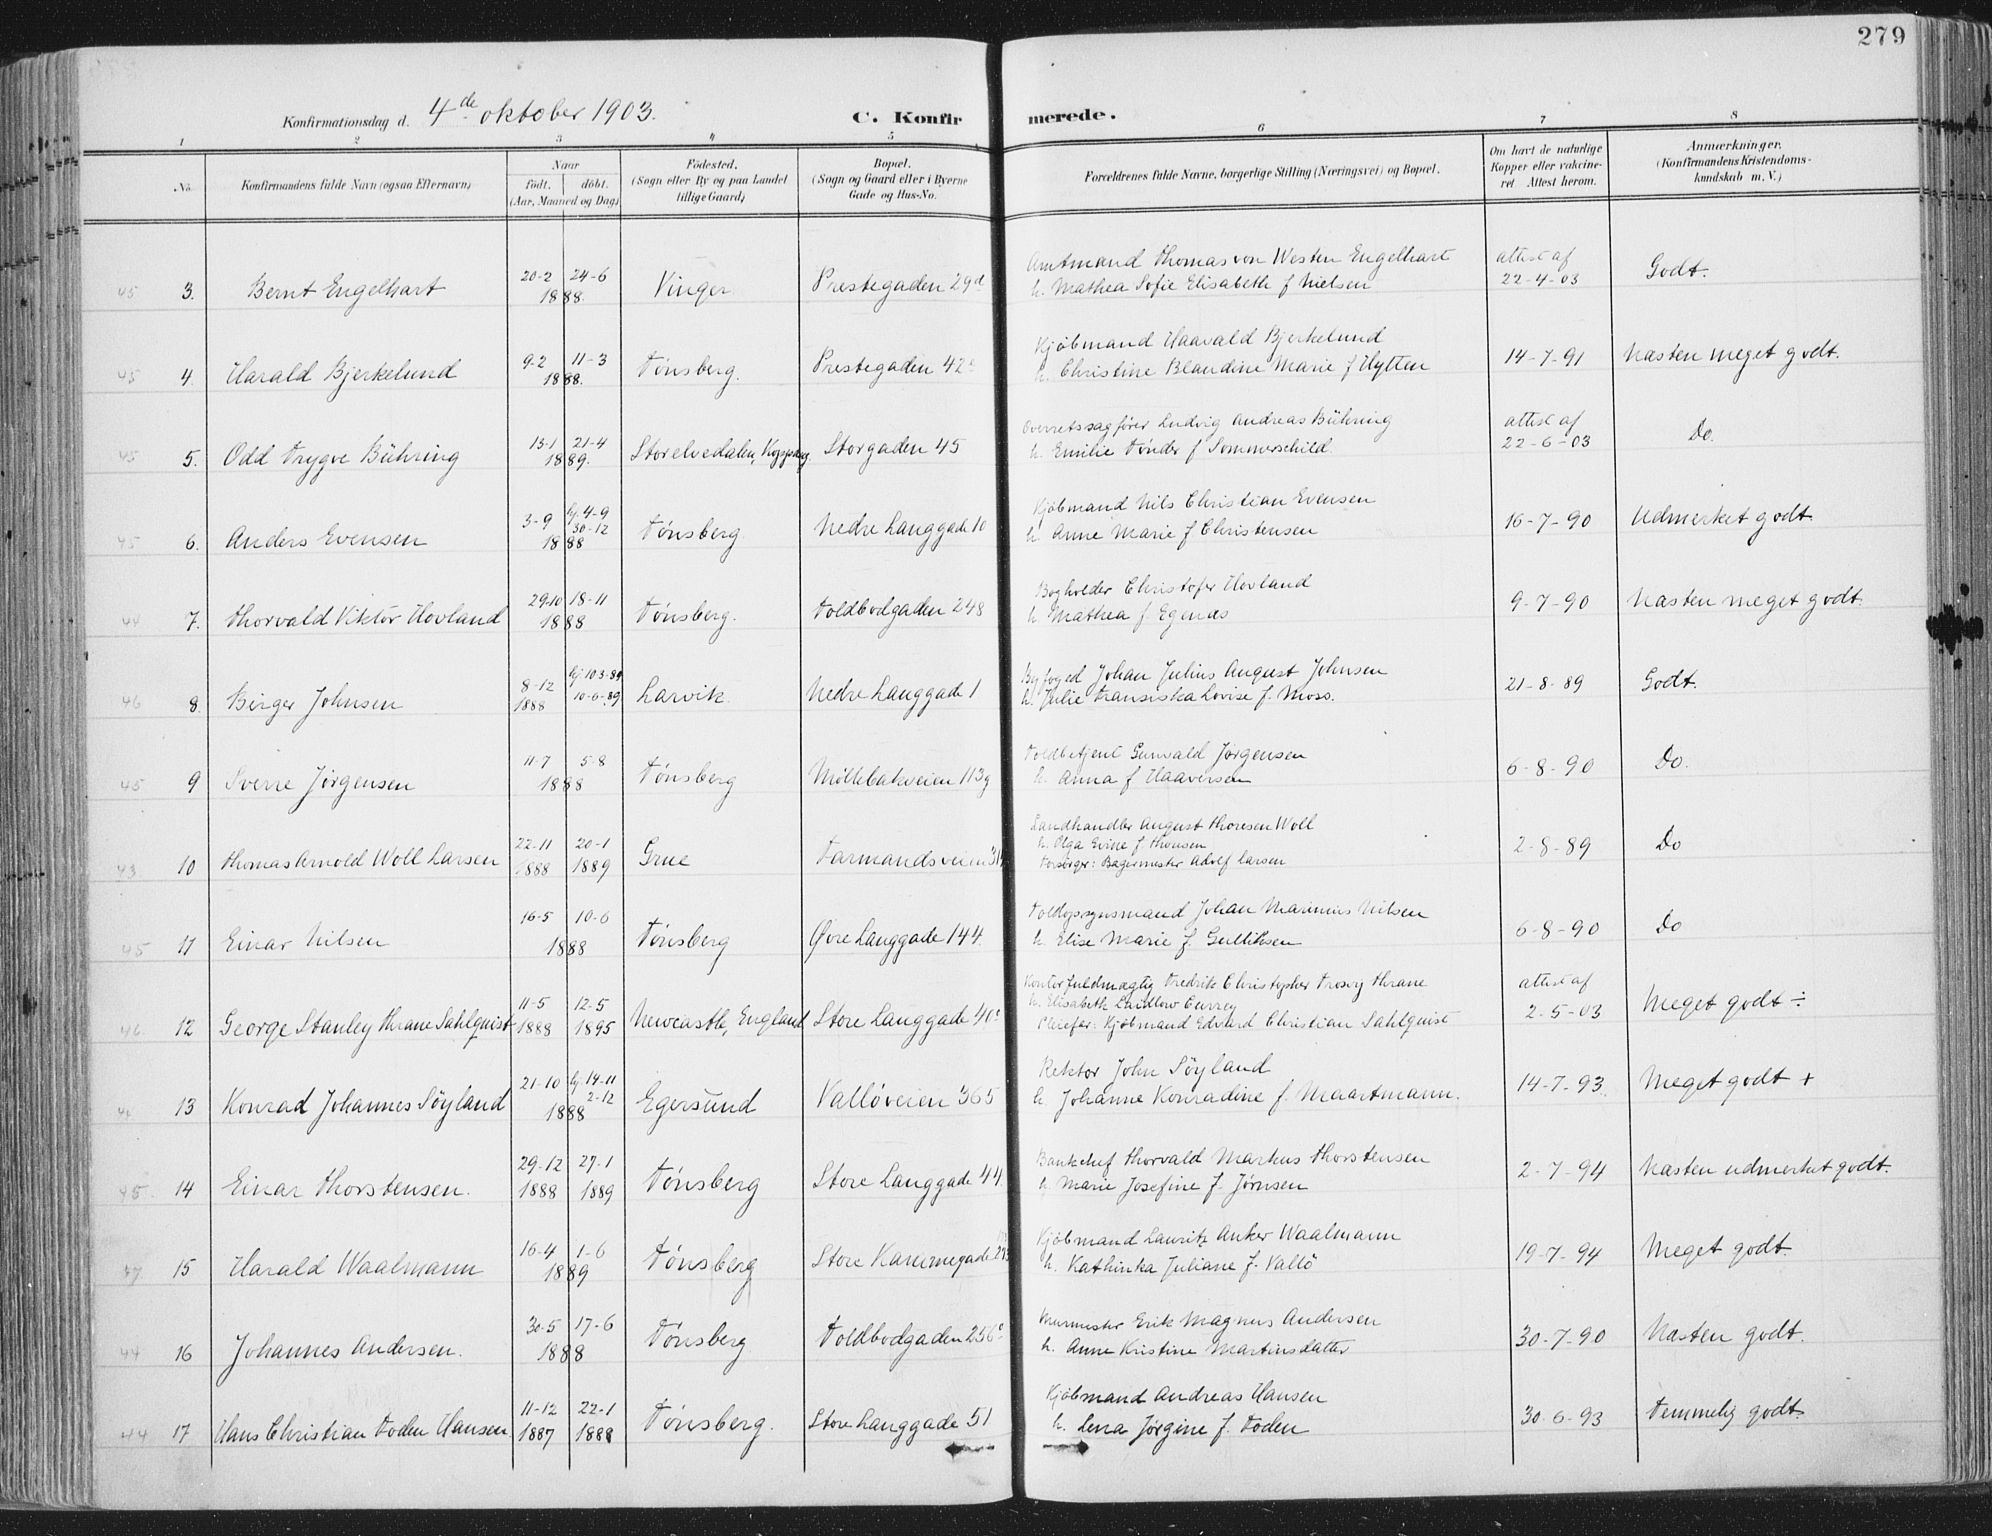 279
Konfirmationsdag d. 4de oktober 1903.
C. Konfirmerede.
1 2 3 4 5 6 7 8
No.
Konfirmandens fulde Navn (ogsaa Efternavn)
Naar
født. døbt.
(Aar, Maaned og Dag)
Fødested.
(Sogn eller By og paa Landet
tillige Gaard)
Bopæl.
(Sogn og Gaard eller i Byerne
Gade og Hus-No.
Forældrenes fulde Navne, borgerlige Stilling (Næringsvei) og Bopæl.
Om havt de naturlige
Kopper eller vakcine-
ret Attest herom.
Anmærkninger.
(Konfirmandens Kristendoms-
kundskab m. V.)
45 3. Bernt Engelhart 20-2 24-6 1888. Vinger Prestegaden 29d
Amtmand Thomas von Westen Engelhart
h. Mathea Sofie Elisabeth f Nielsen
attest af
22-4-03
Godt.
45 4. Harald Bjerkelund 9-2 11-3 1888. Tønsberg. Prestegaden 42
Kjøbmand Haavald Bjerkelund
h. Christine Blandine Marie f Hytten
14-7-91 Næsten meget godt.
45 5. Odd Trygve Bühring 13-1 21-4 1889. Storelvedalen, Storgaden 45
Overretssagfører Ludvig Andreas Bühring
h. Emilie Tønder f Sommerschild.
attest af
22-6-03
Do.
45 6. Anders Evensen 3-9 hj. 4-9 30-12 1888 Tønsberg Nedre Langgade 10
Kjøbmand Nils Christian Evensen
h. Anne Marie f Christensen
16-7-90 Udmerket godt
44 7. Thorvald Viktor Hovland 29-10 18-11 1888 Tønsberg. Toldbodgaden 248
Bogholder Christofer Hovland
h. Mathea f. Egenæs
9-7-90 Næsten meget godt
46 8. Birger Johnsen 8-12 1888 hj. 10-3-89 10-6-89 Larvik. Nedre Langgade 1
Byfoged Johan Julius August Johnsen
h. Julie Fransiska Lovise f. Moss.
21-8-89 Godt.
45 9 Sverre Jørgensen 11-7 5-8 1888 Tønsberg Møllebakveien 113g
Toldbetjent Gunvald Jørgensen
h. Anna f Haaversen
6-8-90 Do.
43 10 Thomas Arnold Woll Larsen 22-11 1888 20-1 1889 Grue Farmandsveien
Landhandler August Thoresen Woll
h. Olga Evine f Thonsen
Forsørger: Bagermester Adolf Larsen
2-8-89 Do
45 11 Einar Nilsen 16-5 10-6 1888 Tønsberg Øvre Langgade 144.
Toldopsynsmand Johan Marinius Nilsen
h. Elise Marie f. Gulliksen
6-8-90 Do
46 12 George Stanley Thrane Sahlquist 11-5 1888 12-5 1895 Newcastle, England Store Langgade 40
Kontorfuldmægtig Fredrik Christopher Trosvig Thrane
h. Elisabeth Laidlow Currey
Pleiefar: Kjøbmand Edvard Christian Sahlquist
attest af
2-5-03
Meget godt ÷
13 Konrad Johannes Søyland 21-10 hj. 14-11 2-12 1888 Egersund Valløveien 365
Rektor John Søyland
h. Johanne Konradine f. Maartmann.
14-7-93. Meget godt +
45. 14 Einar Thorstensen. 29-12 1888 27-1 1889 Tønsberg Store Langgade 44.
Bankchef Thorvald Markus Thorstensen
h. Marie Josefine f. Jørnsen
2-7-94 Næsten udmerket godt.
47 15 Harald Waalmann 16-4 1-6 1889 Tønsberg Store Kannegade
Kjøbmand Lauritz Anker Waalmann
h. Kathinka Juliane f. Vallø
19-7-94 Meget godt
44 16 Johannes Andersen. 30-5 17-6 1888 Tønsberg Toldbodgaden 256
Murmester Erik Magnus Andersen
h. Anne Kristine Martinsdatter
30-7-90 Næsten godt.
44 17 Hans Christian Foden Hansen 11-12 1887 22-1 1888 Tønsberg. Store Langgade 51
Kjøbmand Andreas Hansen
h. Lena Jørgine f. Foden
30-6-93 Temmelig godt.